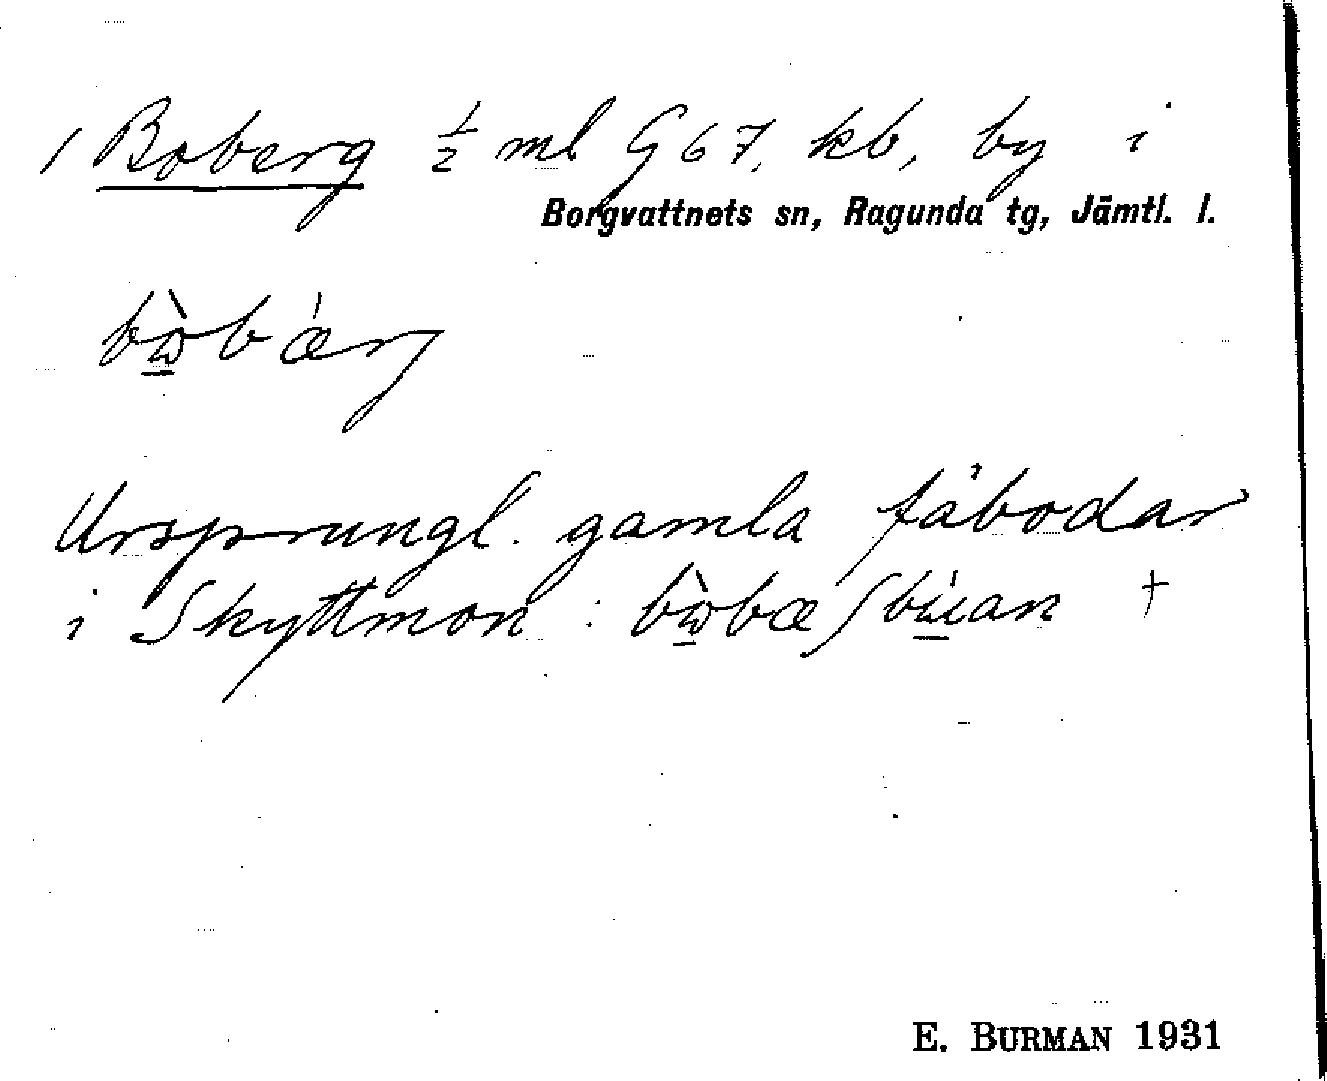 / Boberg ½ ml G 67. kb, by i
Borgvattnets sn, Ragunda tg, Jämtl. l.
bὼ̲bǽrg
Ursprungl. gamla fäbodar
i Skyttmon : bὼ̲bæʃbú̲an †
E. BURMAN 1931